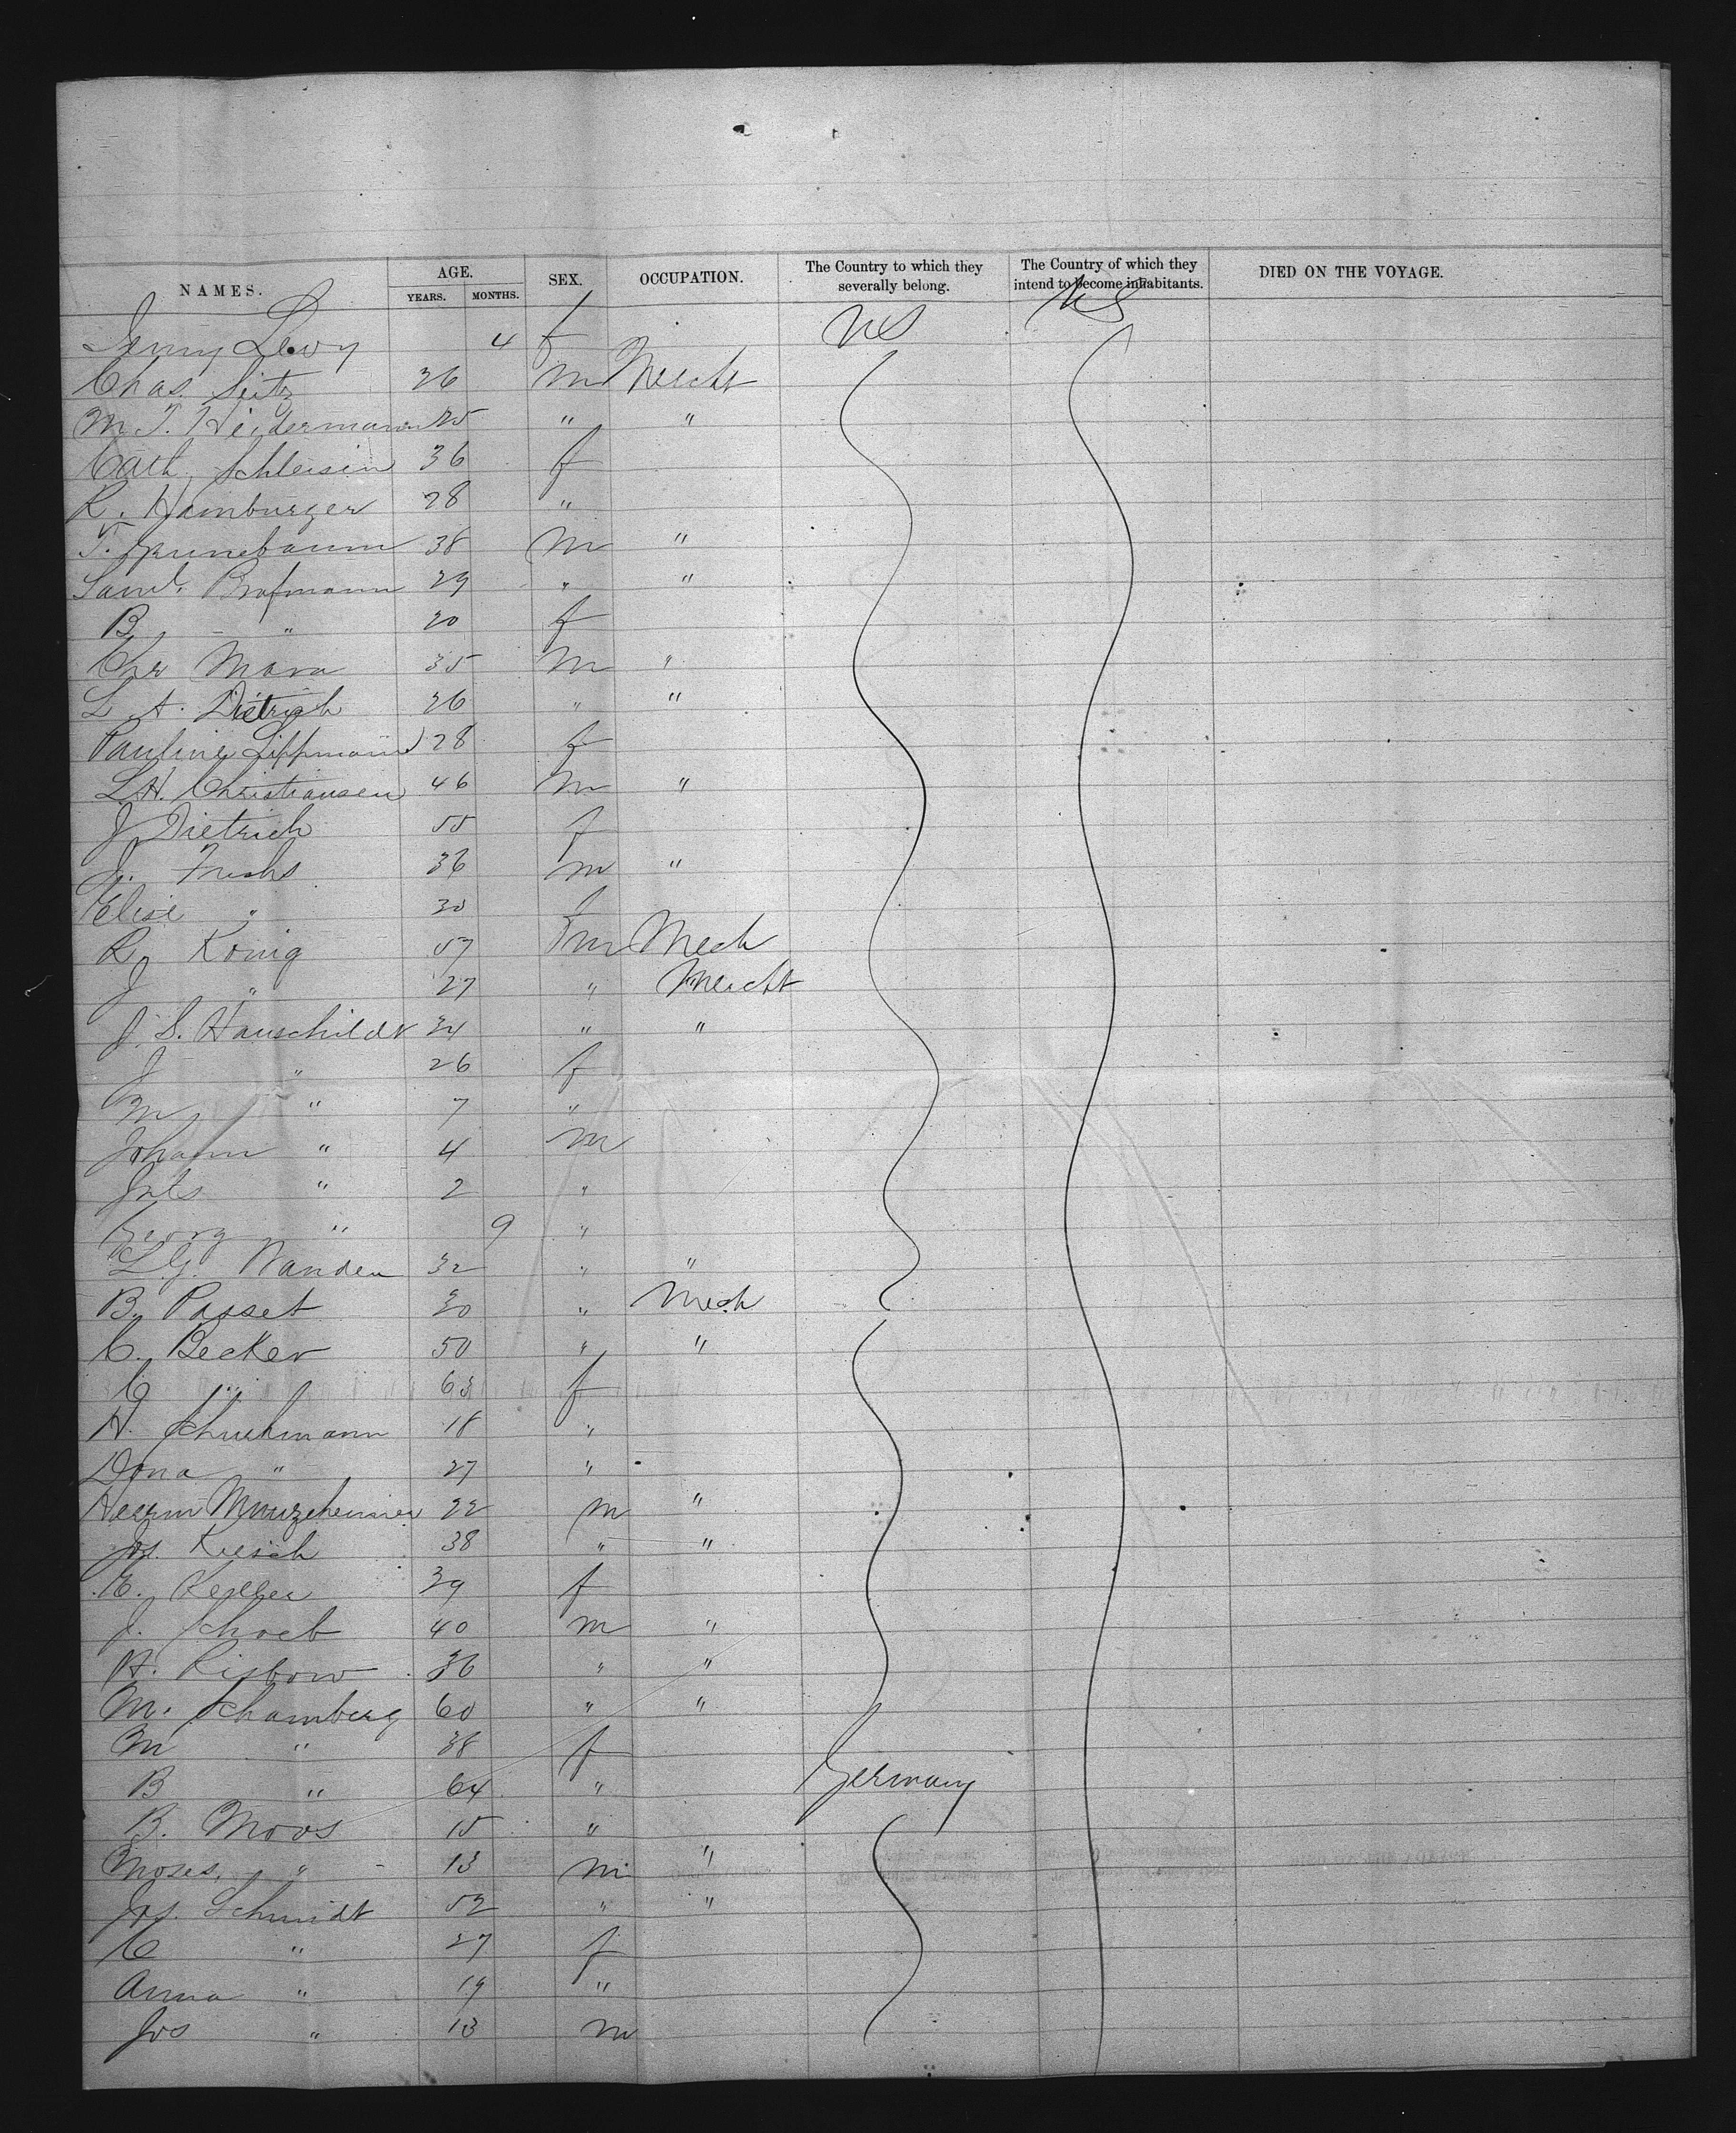 NAMES. AGE. YEARS. MONTHS. SEX. OCCUPATION. The Country to which they severally belong. The Country of which they intend to become inhabitants. DIED ON THE VOYAGE.
Jenny Levy 4 f US US
Chas. Seitz 26 m Mercht
M. T. Heidermann 25 " "
Cath. Schleisin 36 f
R. Hamburger 28 "
T. Grunebaum 38 m "
Saml. 29 " "
B " 20 f
Chr 35 m "
L. A. Dietrich 26 " "
Pauline Lippmann 28 f
L. H. Christiansen 46 m "
J Dietrich 55 f
J. Fuchs 36 m "
Elise " 30 f
R. König 57 m Mech
J " 27 " Mercht
J. S. Hauschildt 34 " "
J " 26 f
M " 7 "
Johann " 4 m
Juls " 2 "
Georg " 9 "
L. G. 32 " "
B. Passet 30 " Mech
C. Becker 50 " "
C " 63 f
H. 18 "
Dona " 27 "
22 m "
Jos. Kirsch 38 " "
E. Keller 39 f
J. Schoeb 40 m "
H. Risbow 36 " "
M. Schamberg 60 " "
M " 38 f
B " 64 " Germany
B. Moos 15 "
Moses " 13 m "
Jos. Schmidt 52 " "
C " 27 f
Anna " 19 "
Jos " 13 m